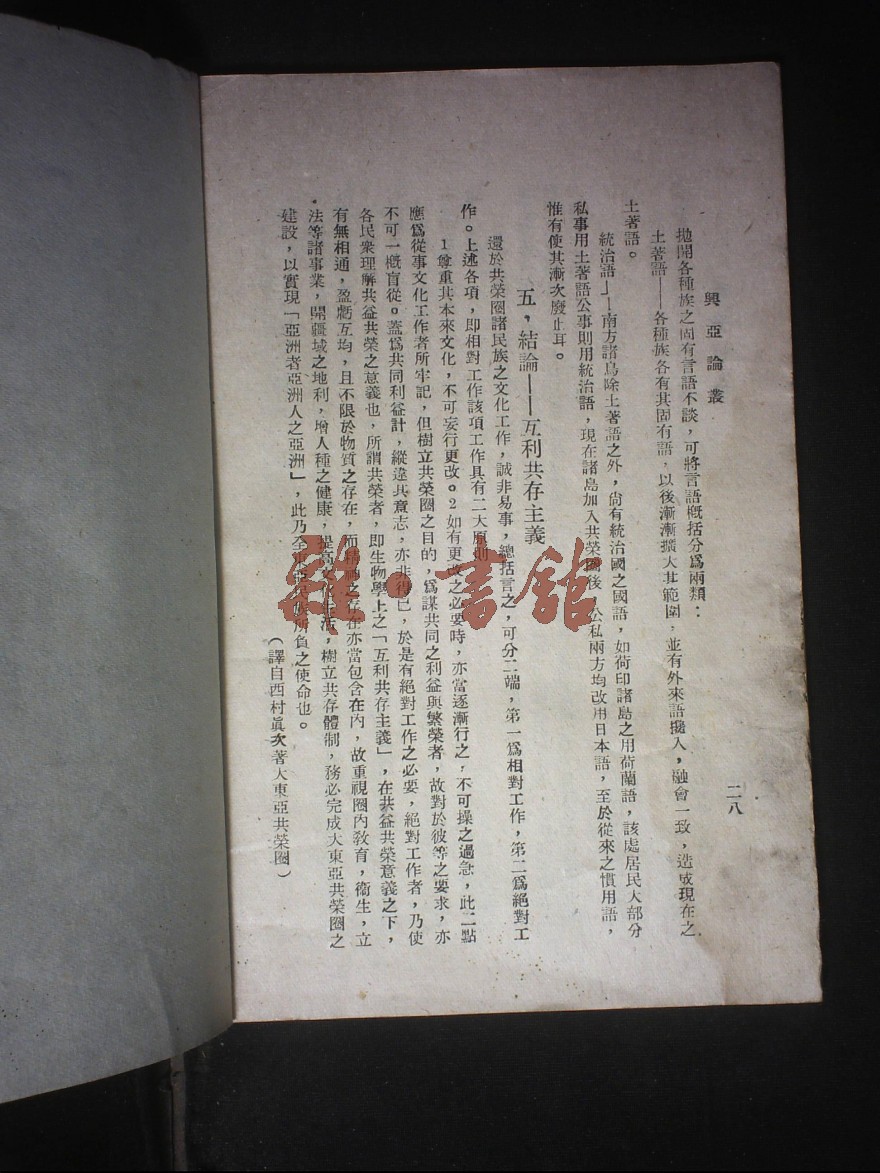 興亞論叢
二八
拋開各種族之固有言語不談，可將言語概括分爲兩類：
土著語——各種族各有其固有語，以後漸漸擴大其範圍，並有外來語攙入，融會一致，造成現在之
土著語。
統治語——南方諸島除土著語之外，尙有統治國之國語，如荷印諸島之用荷蘭語，該處居民大部分
私事用土著語公事則用統治語，現在諸島加入共榮圈後，公私兩方均改用日本語，至於從來之慣用語，
惟有使其漸次廢止耳。
五，結論——互利共存主義
還於共榮圈諸民族之文化工作，誠非易事，總括言之，可分二端，第一爲相對工作，第二爲絕對工
作。上述各項，即相對工作該項工作具有二大原則
1尊重其本來文化，不可妄行更改。2如有更改之必要時，亦當逐漸行之，不可操之過急，此二點
應爲從事文化工作者所牢記，但樹立共榮圈之目的，爲謀共同之利益與繁榮者，故對於彼等之要求，亦
不可一概盲從。蓋爲共同利益計，縱違其意志，亦非得已，於是有絕對工作之必要，絕對工作者，乃使
各民衆理解共益共榮之意義也，所謂共榮者，即生物學上之「互利共存主義」，在共益共榮意義之下，
有無相通，盈虧互均，且不限於物質之存在，而精神之存在亦當包含在內，故重視圈內敎育，衞生，立
法等諸事業，開疆域之地利，增人種之健康，提高文化生活，樹立共存體制，務必完成大東亞共榮圈之
建設，以實現「亞洲者亞洲人之亞洲」，此乃全東亞民族所負之使命也。
（譯自西村眞次著大東亞共榮圈）
雜·書館